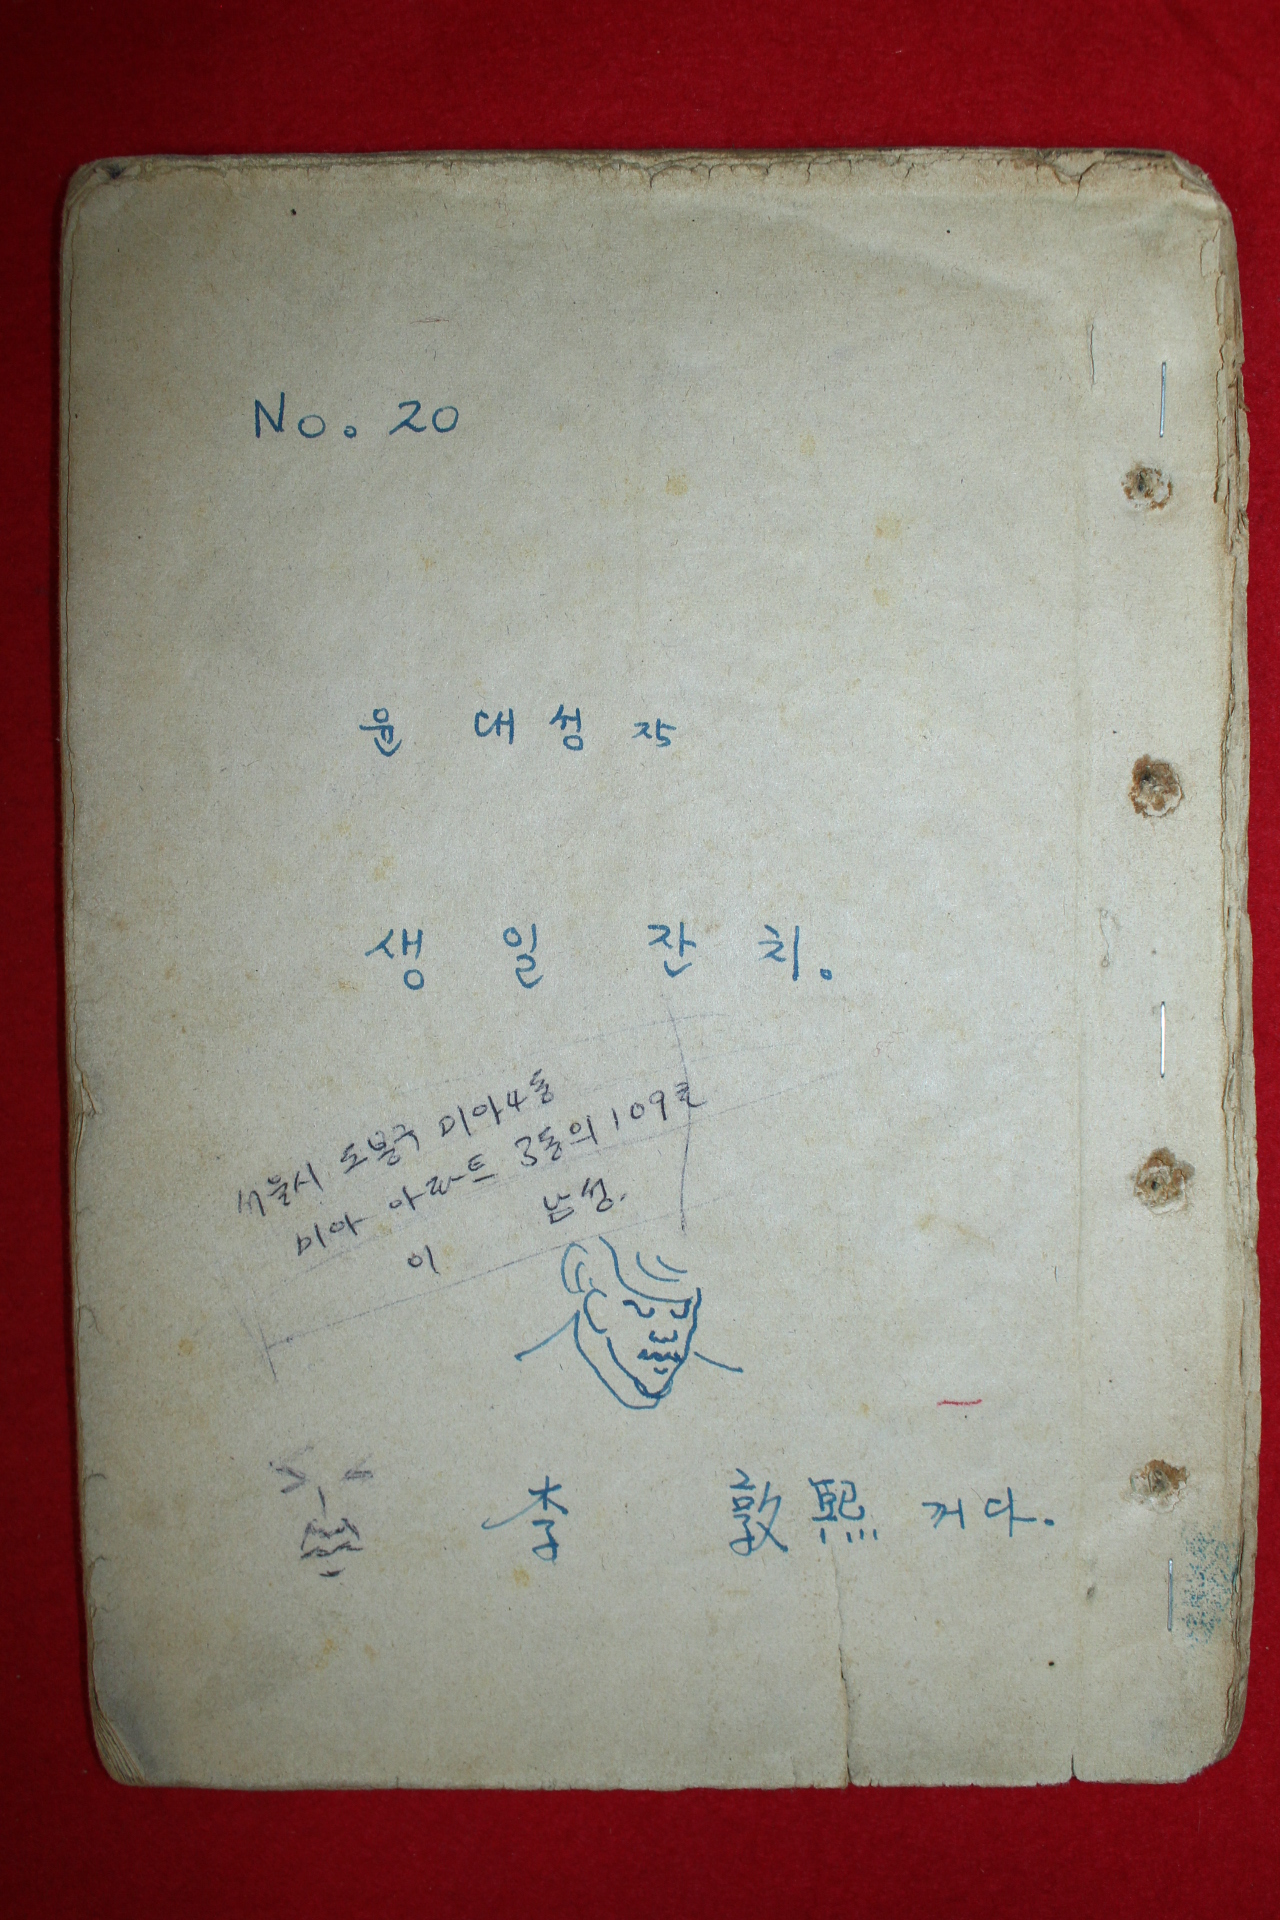 No. 20
윤 대성 작
생 일 잔 치.
서울시 도봉구 미아4동
미아 아파트 3동의 109호
이 남성.
李 敦熙 꺼다.